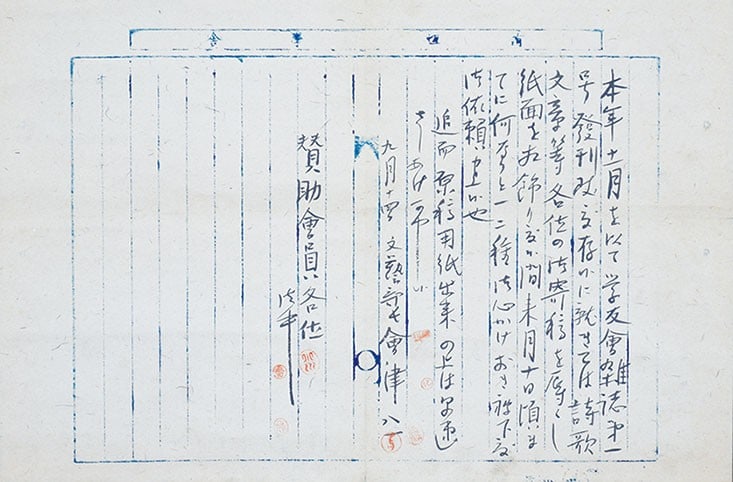 本年十一月を以て学友會雜誌第一
号發刊致度存候に就きては詩歌
文章等各位の御寄稿を辱くし
紙面を相飾り度候間来月十日頃ま
でに何なりと一二種御心がけおき被下度
御依頼申上候也
追而原稿用紙出来の上は早速
さしあげ可申候
九月十四 文藝部 會津八一
賛助會員各位
御中